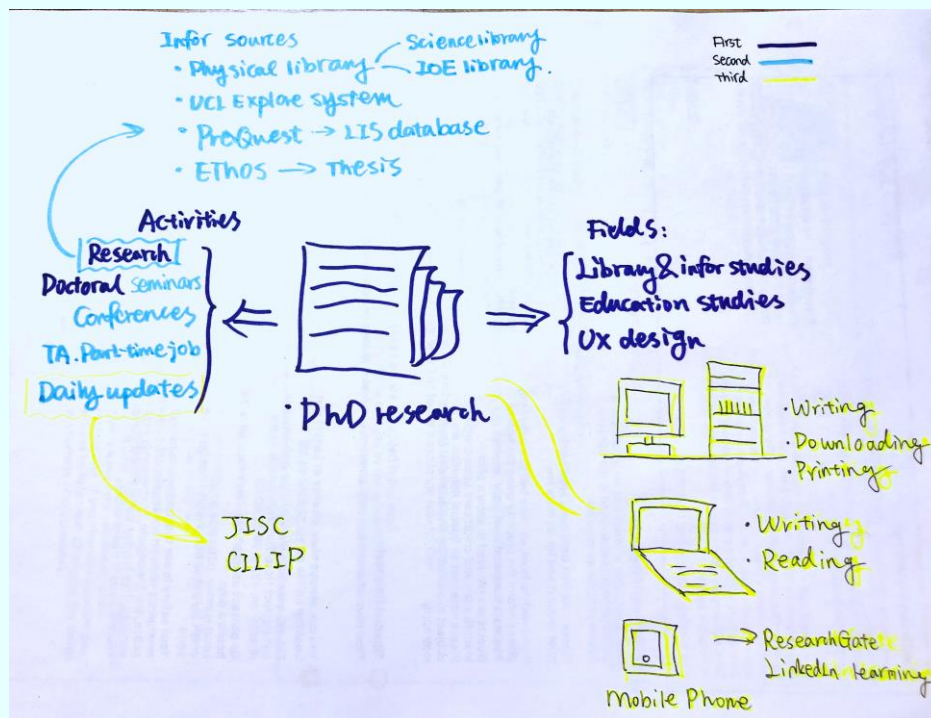 Infor sources
· Physical library
Science library
IOE library.
· UCL Explore system
· ProQuest → LIS database
· EThOS → Thesis
First
Second
Third
Activities
Research
Doctoral seminars
Conferences
TA. Part-time job
Daily updates
· PhD research
Fields:
Library & infor studies
Education studies
UX design
· Writing
· Downloading
· Printing
· Writing
· Reading
Mobile Phone
→ ResearchGate
LinkedIn learning
JISC
CILIP